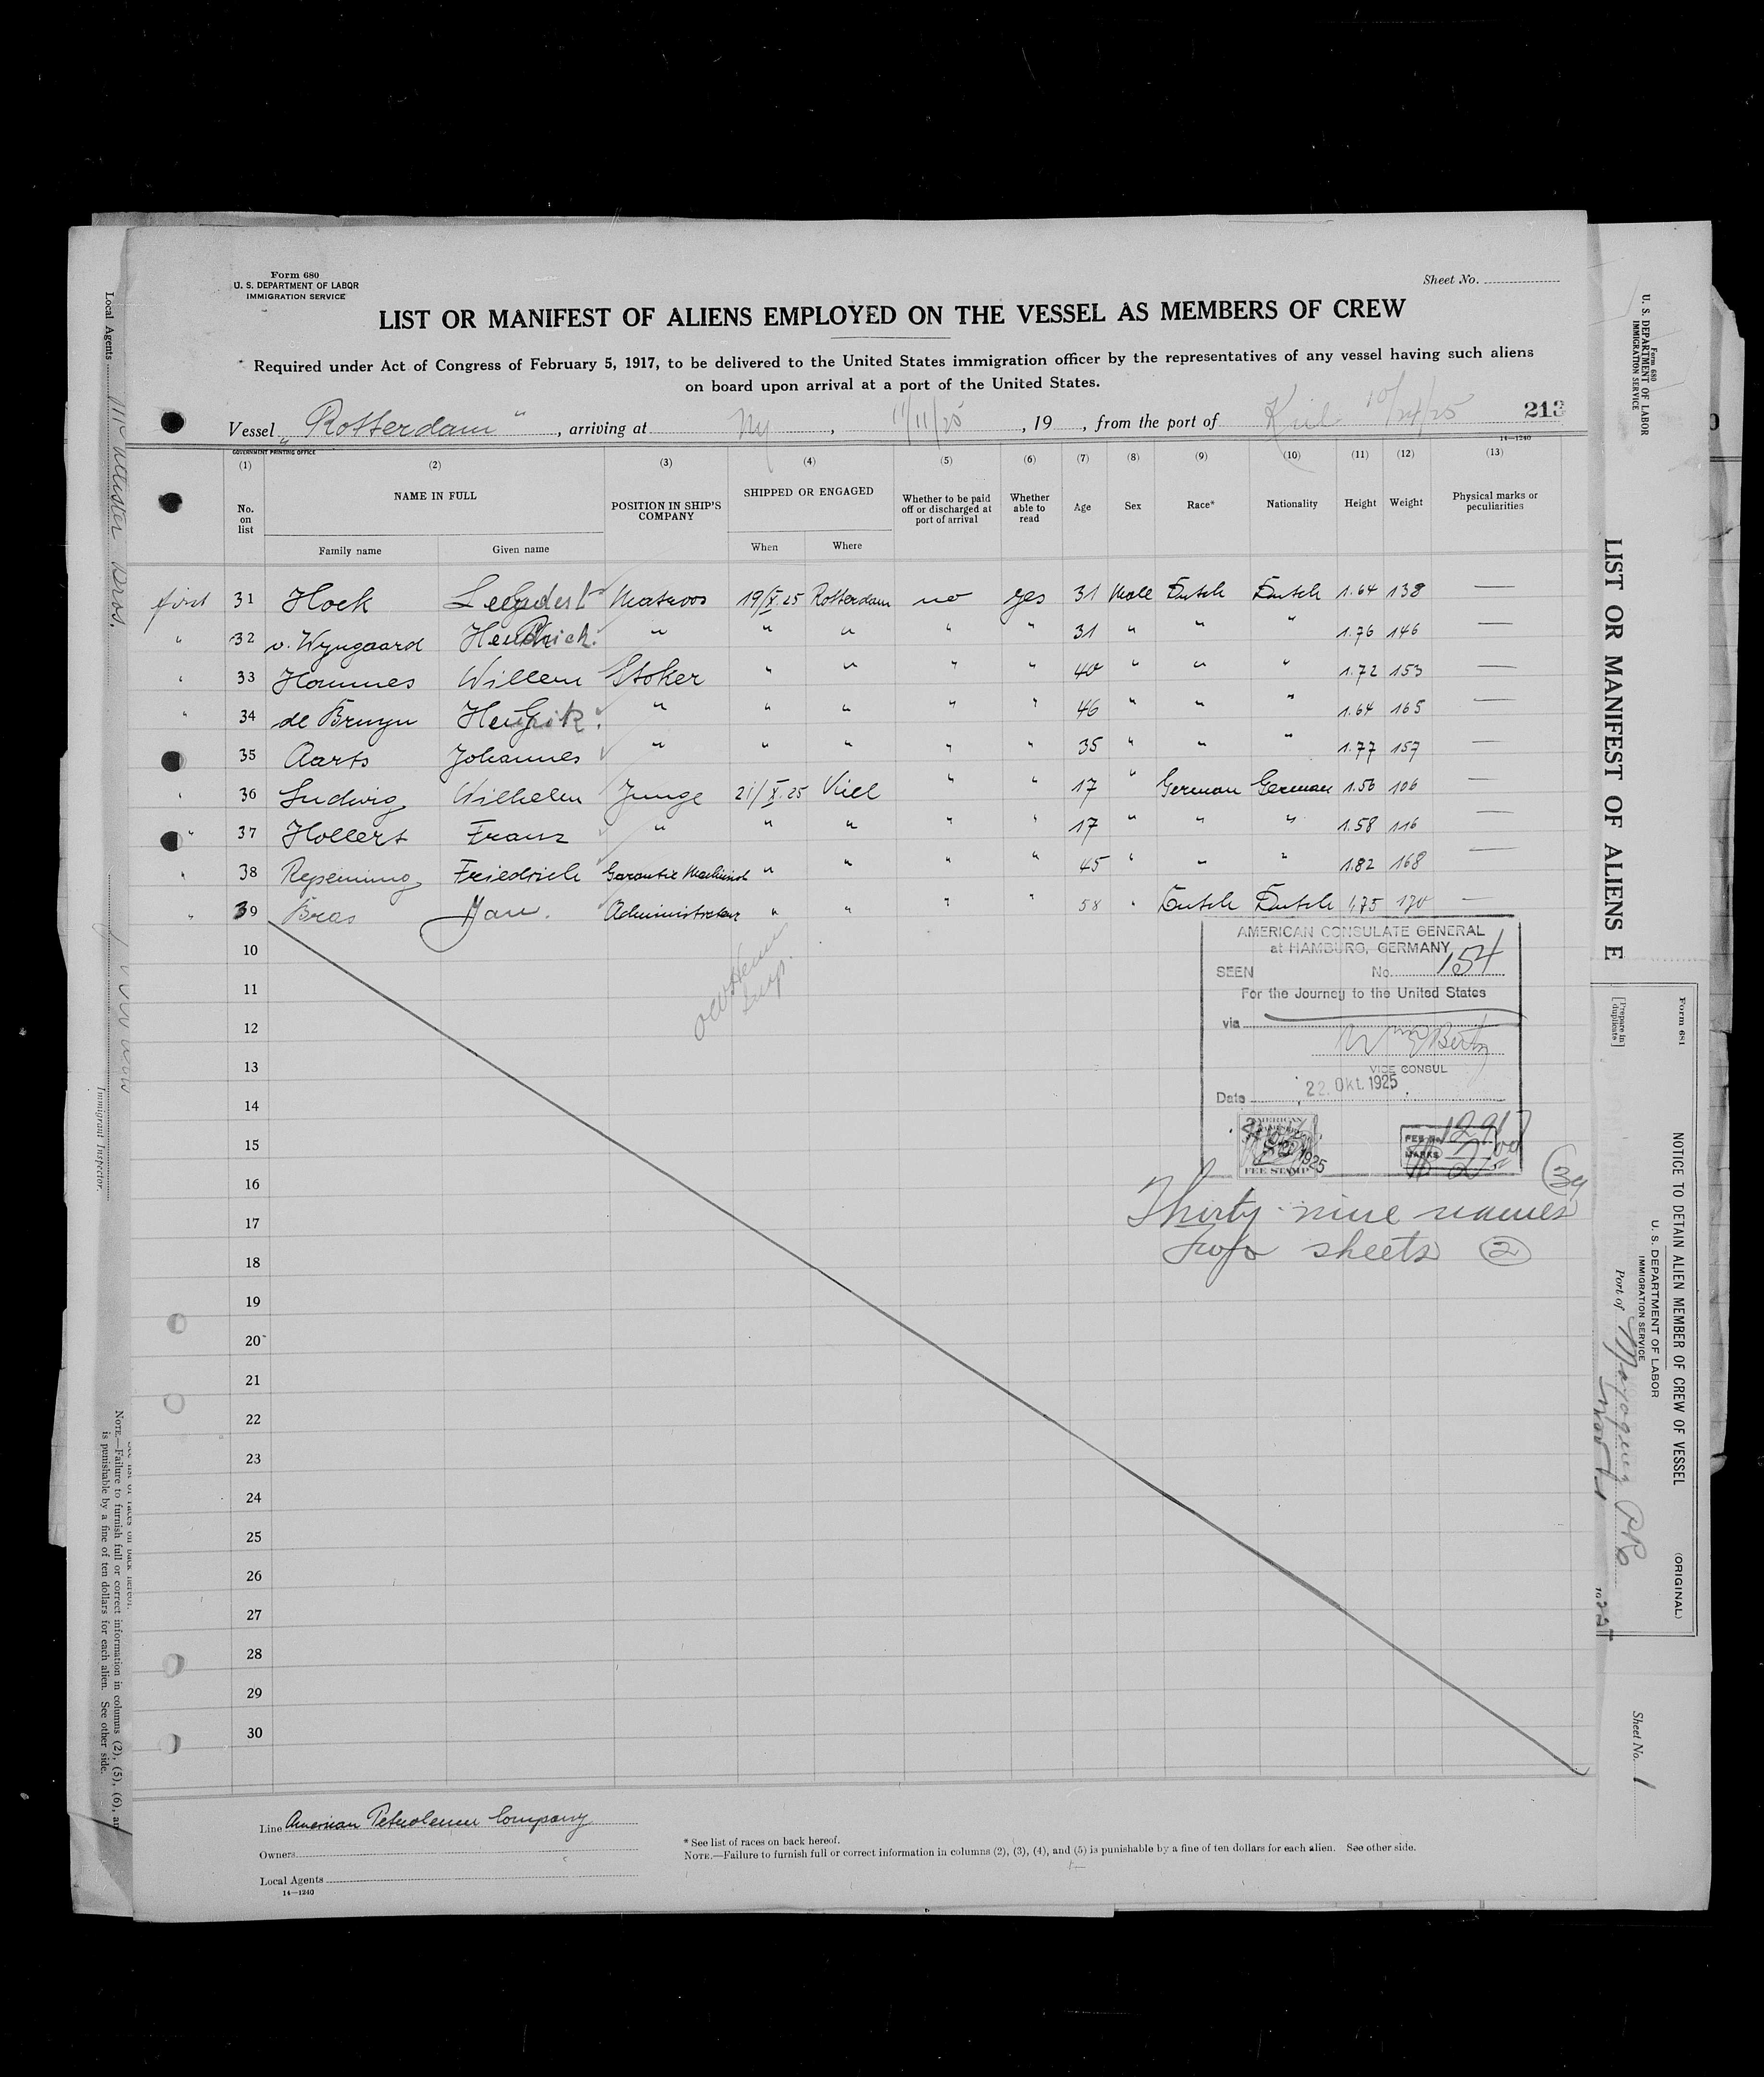 Form 680
U. S. DEPARTMENT OF LABOR
IMMIGRATION SERVICE
Sheet No.
LIST OR MANIFEST OF ALIENS EMPLOYED ON THE VESSEL AS MEMBERS OF CREW
Required under Act of Congress of February 5, 1917, to be delivered to the United States immigration officer by the representatives of any vessel having such aliens
on board upon arrival at a port of the United States.
Vessel „Rotterdam“, arriving at Ny, 11/11/25, 19 , from the port of Kiel 10/24/25 213
GOVERNMENT PRINTING OFFICE 14—1240
(1) (2) (3) (4) (5) (6) (7) (8) (9) (10) (11) (12) (13)
No. on list NAME IN FULL POSITION IN SHIP'S COMPANY SHIPPED OR ENGAGED Whether to be paid off or discharged at port of arrival Whether able to read Age Sex Race* Nationality Height Weight Physical marks or peculiarities
Family name Given name When Where
first 31 Hoek Leendert Matroos 19/X 25 Rotterdam no yes 31 Male Dutch Dutch 1.64 138 —
" 32 v. Wyngaard Hendrick " " " " " 31 " " " 1.76 146 —
" 33 Hommes Willem Stoker " " " " 40 " " " 1.72 153 —
" 34 de Bruyn Hendrik " " " " " 46 " " " 1.64 165 —
35 Aarts Johannes " " " " " 35 " " " 1.77 157 —
" 36 Ludwig Wilhelm Junge 21/X.25 Kiel " " 17 " German German 1.56 106 —
" 37 Hollert Franz " " " " " 17 " " " 1.58 116 —
" 38 Repenning Friedrich Garantie Machinist " " " " 45 " " " 1.82 168 —
" 39 Bras Jan. Administrateur " " " " 58 " Dutch Dutch 1,75 170 —
10
11
12
13
14
15
16
17
18
19
20
21
22
23
24
25
26
27
28
29
30
Insp.
AMERICAN CONSULATE GENERAL
at HAMBURG, GERMANY
SEEN No. 154
For the Journey to the United States
via
VICE CONSUL
Date 22. Okt. 1925
AMERICAN
1925
FEE STAMP
FEE No.
MARKS
39
Thirty-nine names
Two sheets 2
Line American Petroleum Company
Owners
Local Agents
14—1240
* See list of races on back hereof.
NOTE.—Failure to furnish full or correct information in columns (2), (3), (4), and (5) is punishable by a fine of ten dollars for each alien. See other side.
Local Agents McAllister Bros.
Immigrant Inspector.
NOTE.—Failure to furnish full or correct information in columns (2), (5), (6), an
is punishable by a fine of ten dollars for each alien. See other side.
Form 680
U. S. DEPARTMENT OF LABOR
IMMIGRATION SERVICE
LIST OR MANIFEST OF ALIENS E
Form 681
[Prepare in duplicate]
NOTICE TO DETAIN ALIEN MEMBER OF CREW OF VESSEL
(ORIGINAL)
U. S. DEPARTMENT OF LABOR
IMMIGRATION SERVICE
Port of Mayaguez P.R.
Sheet No. 1